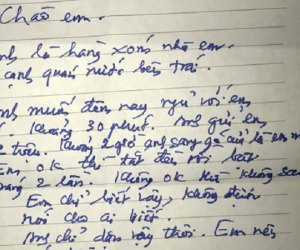 Chào em.
Anh là hàng xóm nhà em.
cạnh quán nước bên trái.
Anh muốn đêm nay ngủ với em
Khoảng 30 phút. Anh gửi em
2 triệu. Khoảng 2 giờ anh sang gõ cửa là em
Em ok thì tắt đèn rồi bật
2 lần. không ok thì không sao
Em chỉ biết vậy, không được
nói cho ai biết.
Anh chỉ dám vậy thôi. Em nếu